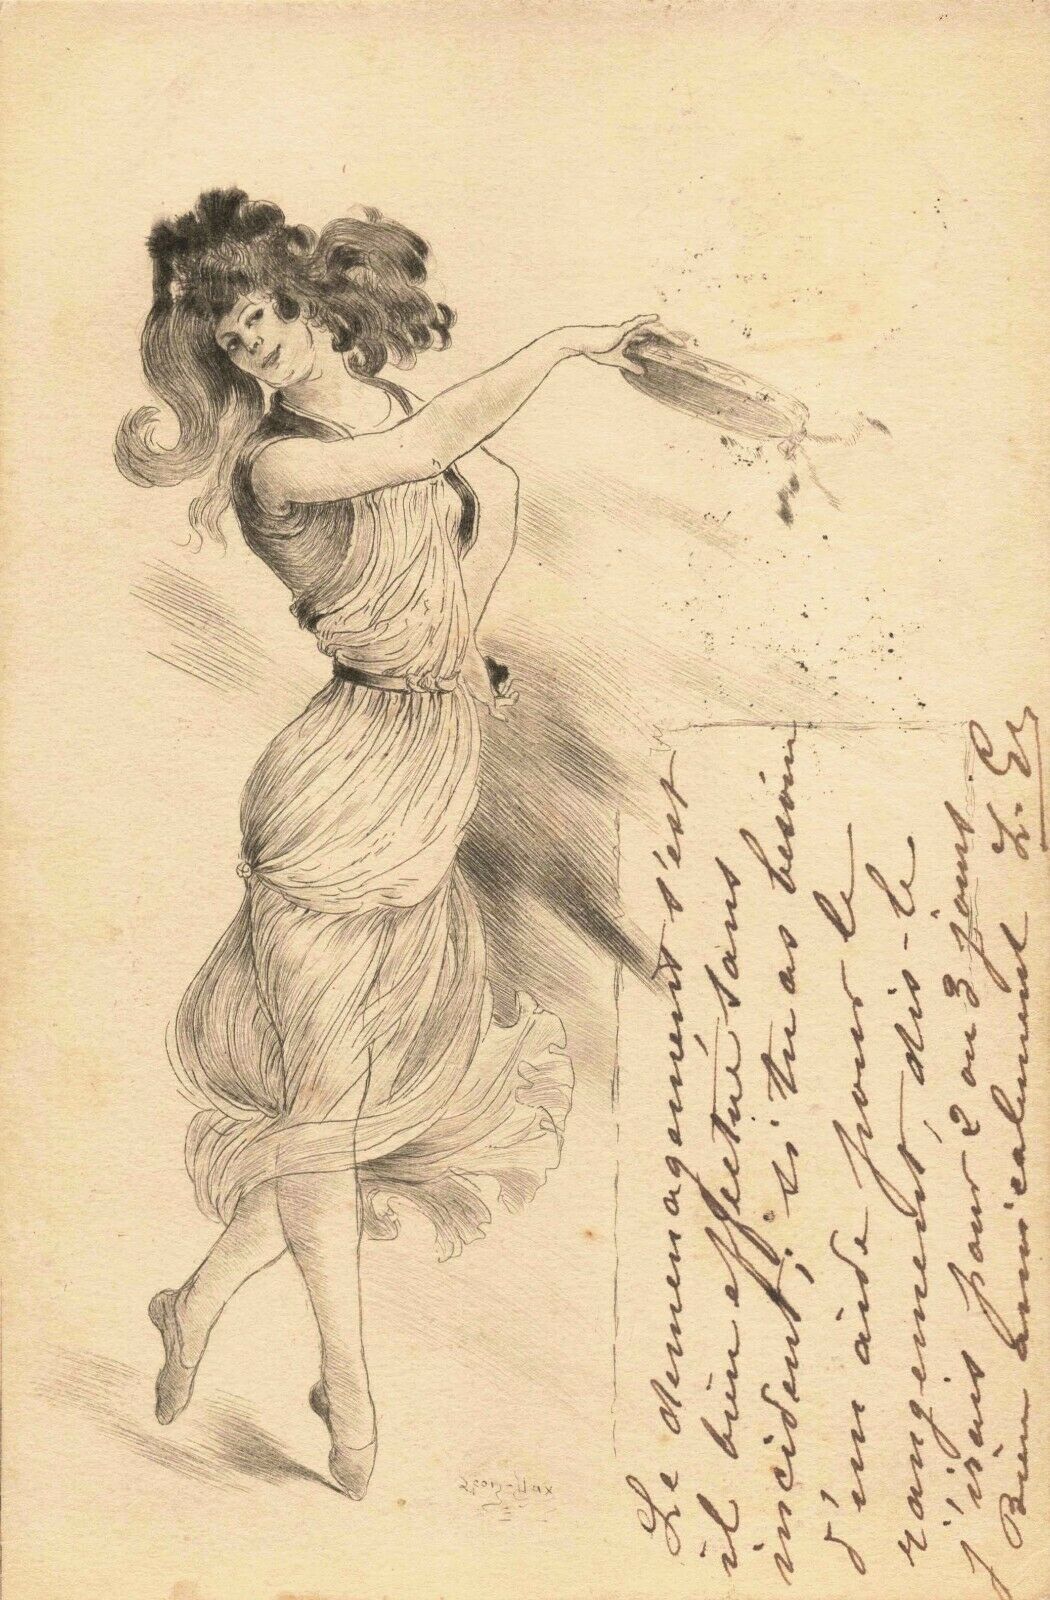 Le demenagement s'est
il bien effectué sans
incident; si tu as besoin
d'un aide pour le
rangement, dis-le
j'irais pour 2 ou 3 jours
Bien amicalement